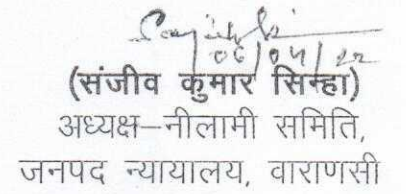 06/04/22
(संजीव कुमार सिन्हा)
अध्यक्ष–नीलामी समिति,
जनपद न्यायालय, वाराणसी